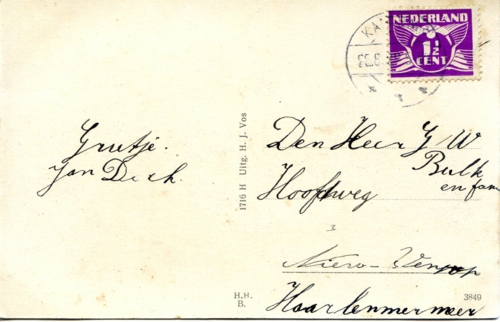 NEDERLAND
1½
CENT
KA
Groetje.
Jan Derk.
1716 H Uitg. H. J. Vos
Den Heer G W
Bulk
en fam
Hoofdweg
Nieuw-Vennep
Haarlemmermeer
H.H.
B.
3849